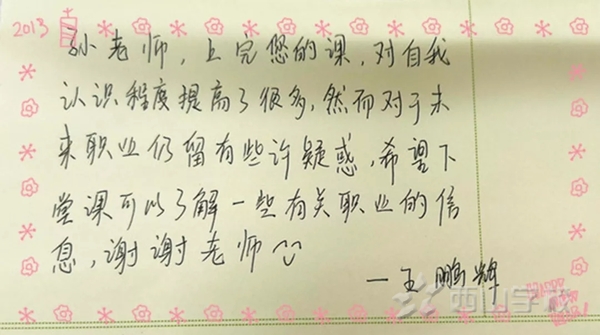 2013
孙老师，上完您的课，对自我
认识程度提高了很多，然而对于未
来职业仍留有些许疑惑，希望下
堂课可以了解一些有关职业的信
息，谢谢老师
—王鹏辉
西山学校